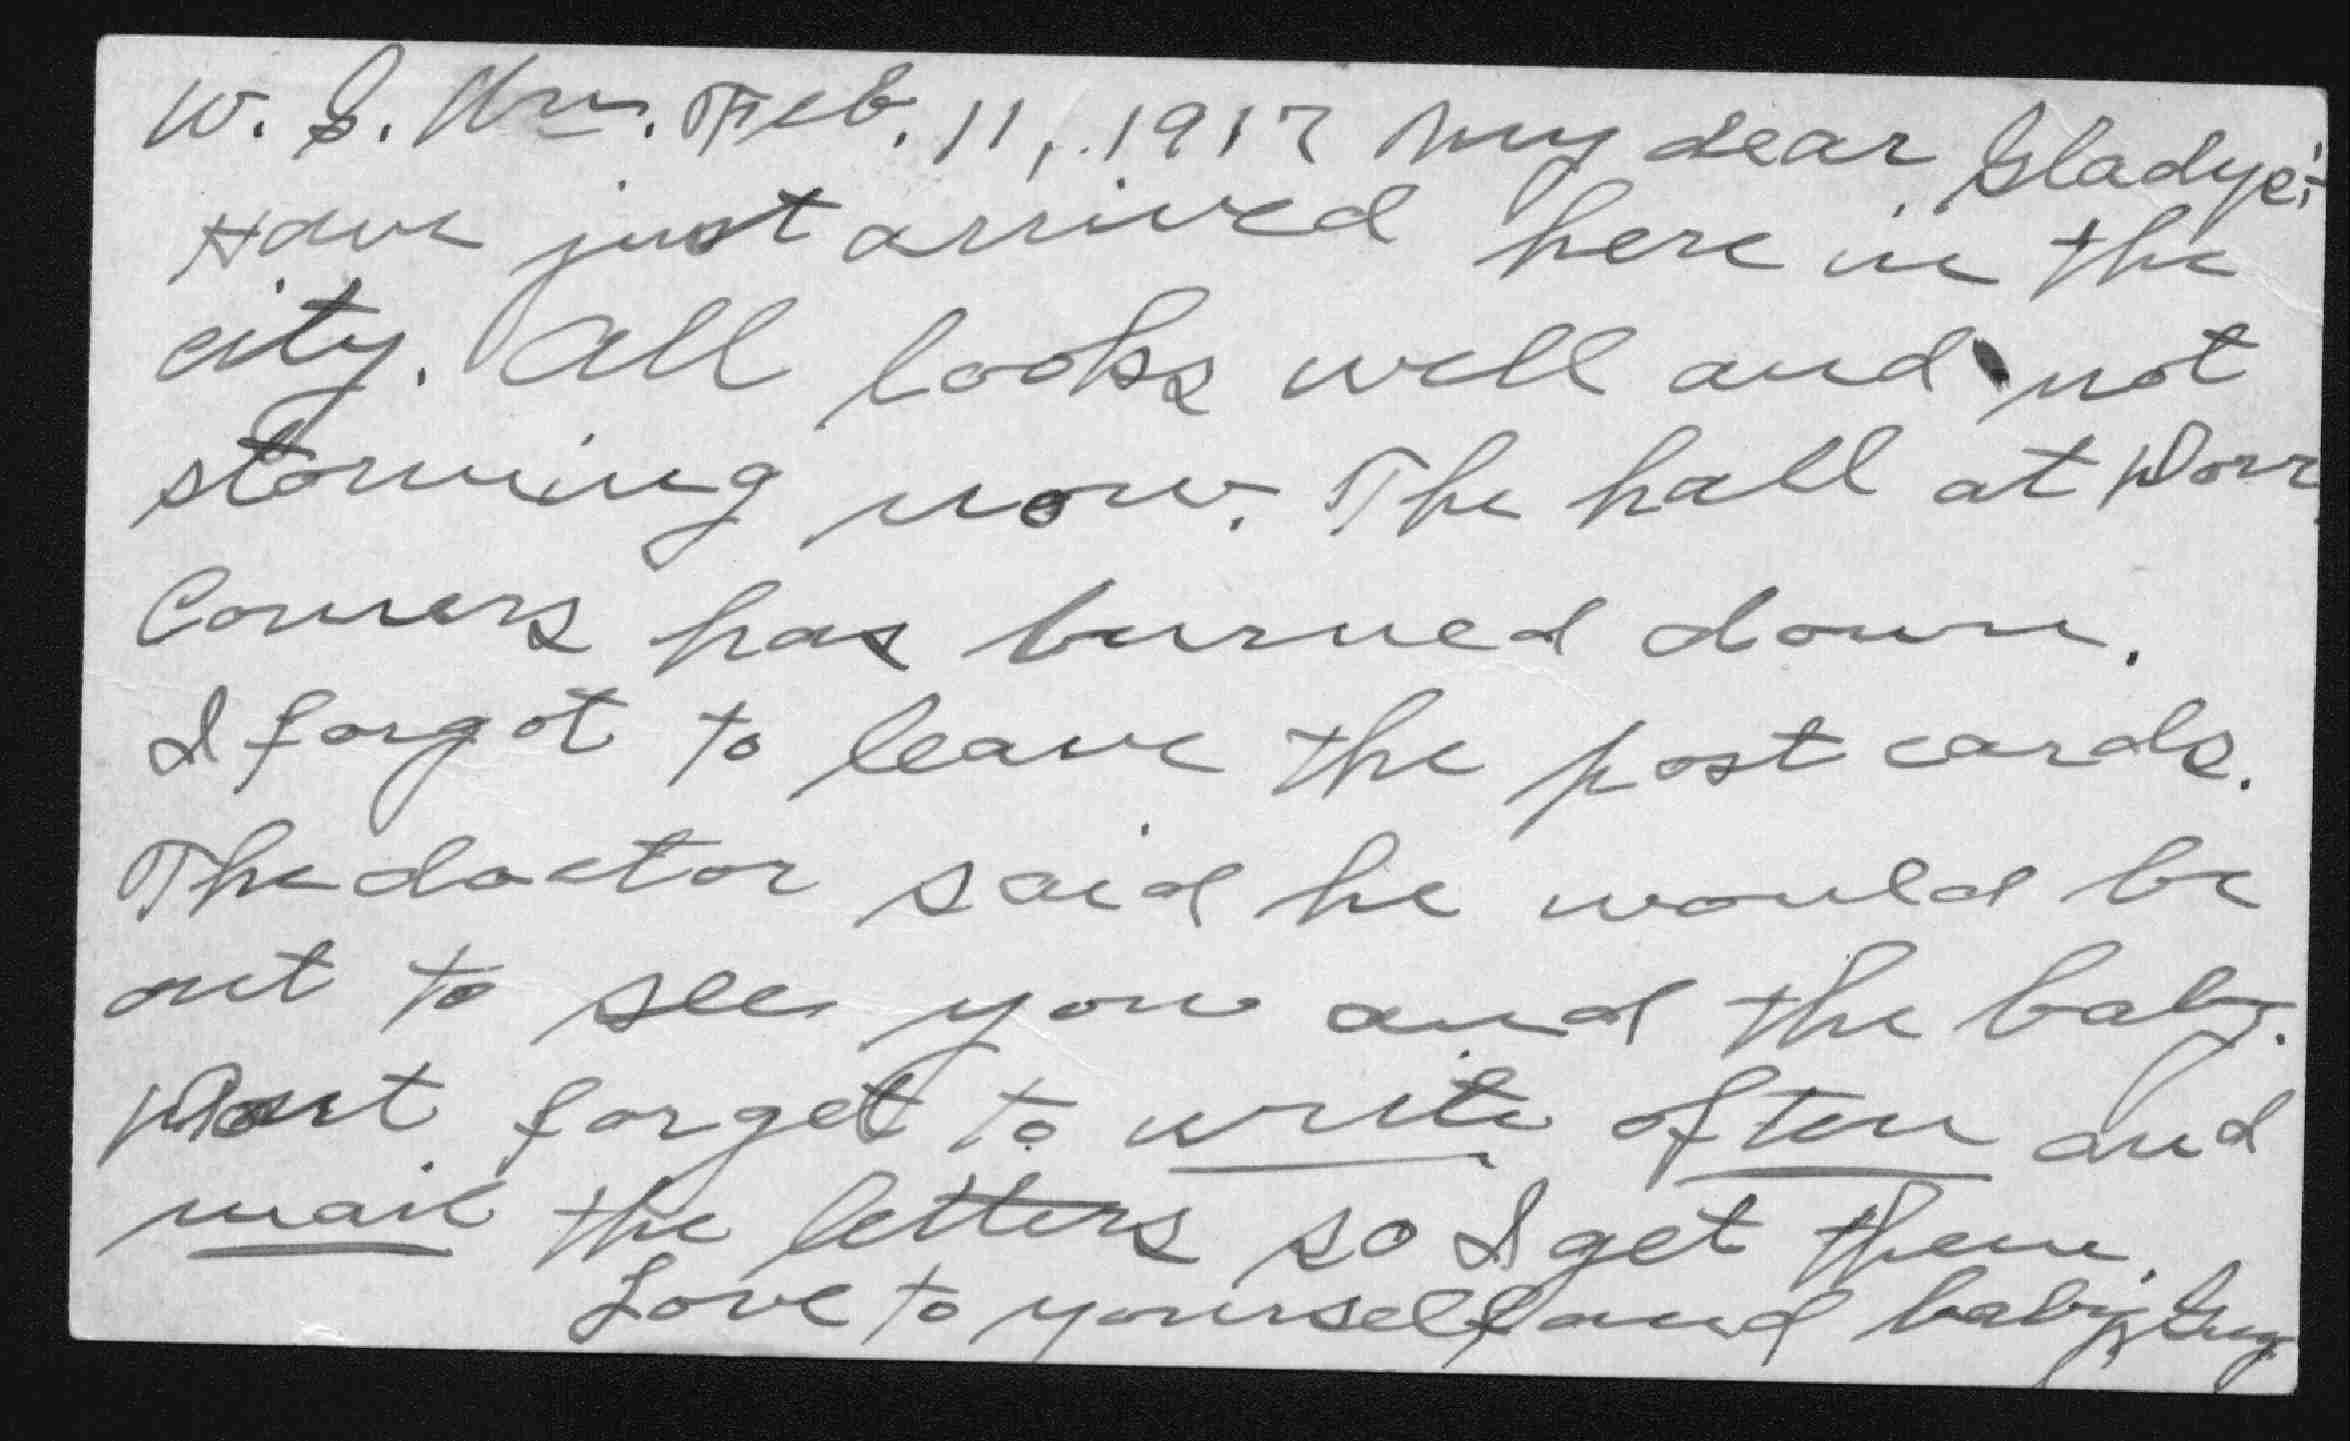 W. S. Wm. Feb. 11, 1917 My dear Gladys:-
Have just arrived here in the
city. All looks well and not
storming now. The hall at Dorr
Corners has burned down.
I forgot to leave the post cards.
The doctor said he would be
out to see you and the baby.
Dont forget to write often and
mail the letters so I get them.
Love to yourself and baby, Guy